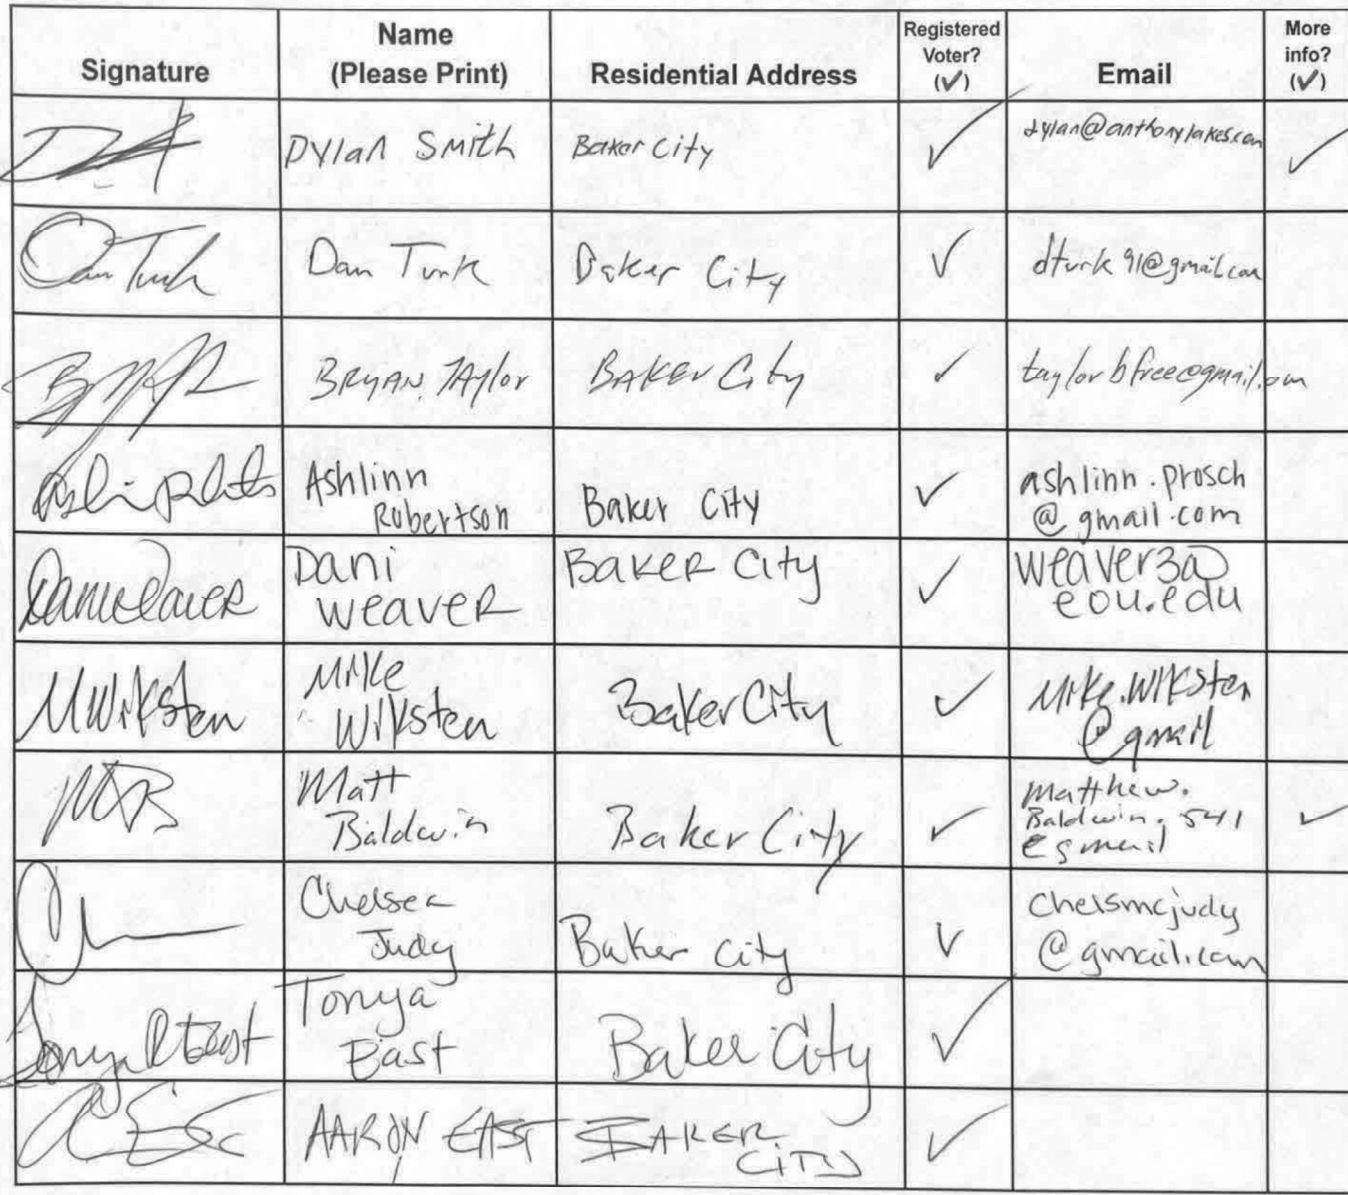 Signature Name (Please Print) Residential Address Registered Voter? (✓) Email More info? (✓)
Dylan Smith Baker City ✓ dylan@anthonylakes.com ✓
Dan Turk Dan Turk Baker City ✓ dturk91@gmail.com
BRYAN TAylor BAKER City ✓ taylorbfree@gmail.com
Ashlinn Robertson Baker City ✓ ashlinn.prosch
@gmail.com
Dani Weaver Baker City ✓ weaver3@
eou.edu
MWiksten Mike Wiksten Baker City ✓ Mike.Wiksten
@gmail
Matt Baldwin Baker City ✓ matthew.
Baldwin.541
@gmail ✓
Chelsea Judy Baker City ✓ chelsmcjudy
@gmail.com
Tonya R East Tonya East Baker City ✓
AARON EAST BAKER CITY ✓